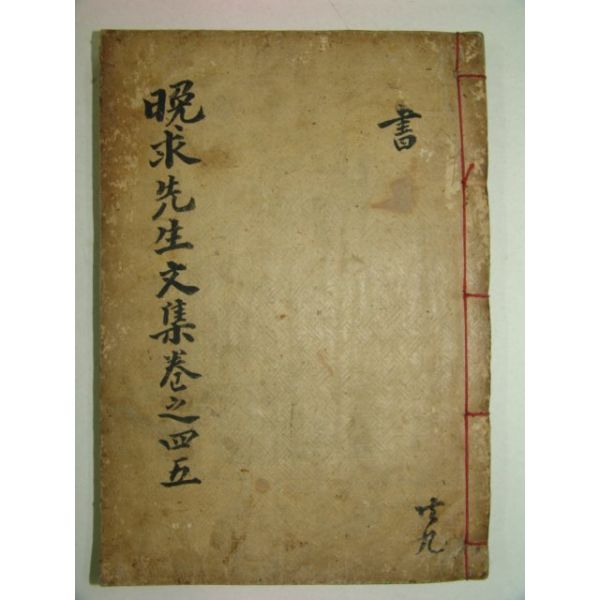 書
共九
晩求先生文集卷之四五